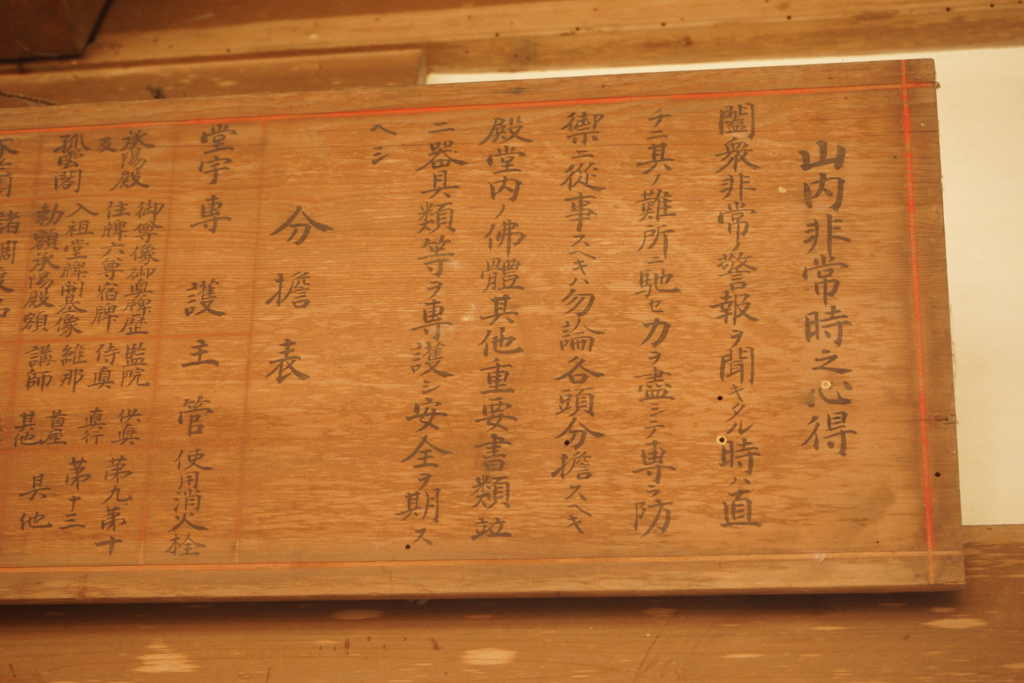 山内非常時之心得
闔衆非常ノ警報ヲ聞キタル時ハ直
チニ其ノ難所ニ馳セ力ヲ盡シテ専ラ防
禦ニ從事スヘキハ勿論各頭分擔スヘキ
殿堂内ノ佛體其他重要書類竝
ニ器具類等ヲ専護シ安全ヲ期ス
ヘシ
分擔表
堂宇専護主管使用消火栓
承陽殿 御尊像御真牌歴 監院 供真 第九、第十
及 住牌六尊宿牌 侍真 真行
孤雲閣 入祖堂牌開基像 維那 首座 第十三
勅額承陽殿額 講師 其他 具他